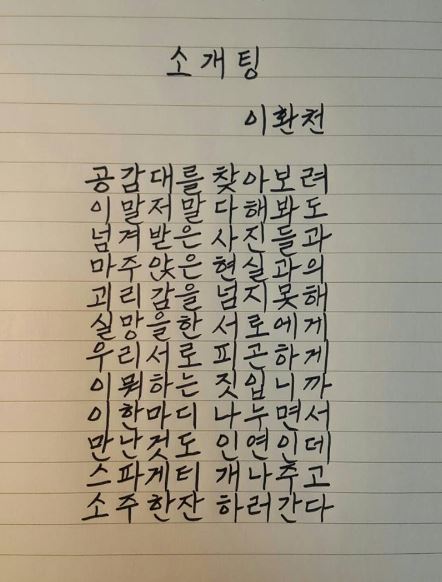 소개팅
이환천
공감대를 찾아보려
이말저말 다해봐도
넘겨받은 사진들과
마주앉은 현실과의
괴리감을 넘지못해
실망을한 서로에게
우리서로 피곤하게
이뭐하는 짓입니까
이한마디 나누면서
만난것도 인연인데
스파게티 개나주고
소주한잔 하러간다